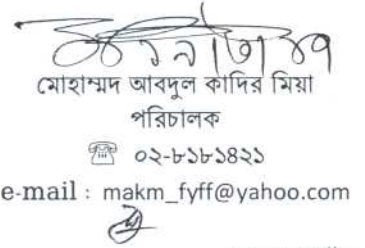 মোহাম্মদ আবদুল কাদির মিয়া
পরিচালক
☎ ০২-৮১৮১৪২১
e-mail : makm_fyff@yahoo.com